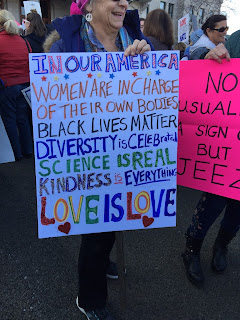 IN OUR AMERICA
WOMEN ARE IN CHARGE
OF THEIR OWN BODIES
BLACK LIVES MATTER
DIVERSITY is CELEBRATED
SCIENCE IS REAL
KINDNESS is EVERYTHING
LOVE IS LOVE
NO
USUAL
A SIGN
BUT
JEEZ